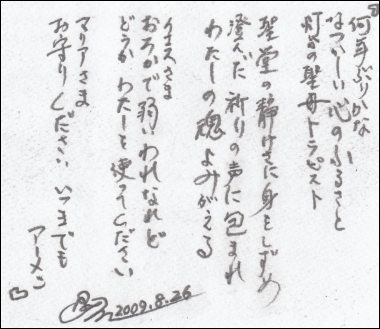 何年ぶりかな
なつかしい心のふるさと
灯台の聖母トラピスト
聖堂の静けさに身をしずめ
澄んだ祈りの声に包まれ
わたしの魂よみがえる
イエスさま
おろかで弱いわれなれど
どうかわたしを使ってください
マリアさま
お守りください いつまでも
アーメン
2009.8.26